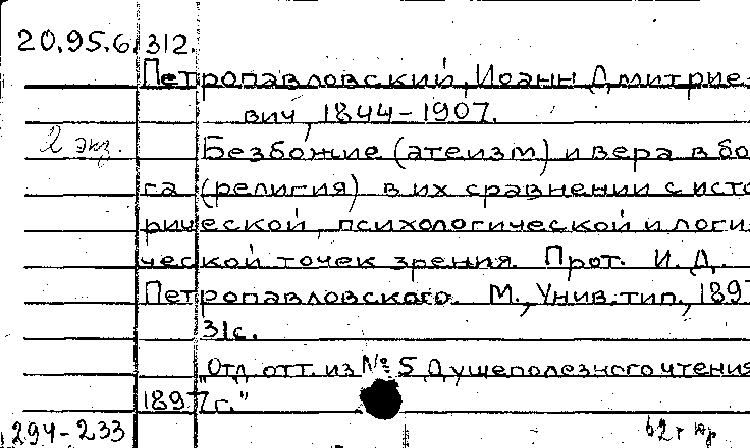 20.95.6.312.
Петропавловский, Иоанн Дмитрие-
вич, 1844-1907.
2 экз. Безбожие (атеизм) и вера в бо
га (религия) в их сравнении с исто
рической, психологической и логи-
ческой точек зрения. Прот. И. Д.
Петропавловского. М., Унив. тип., 1897
31с.
"Отд. отт. из № 5 Душеполезного чтения
1897 г."
294-233